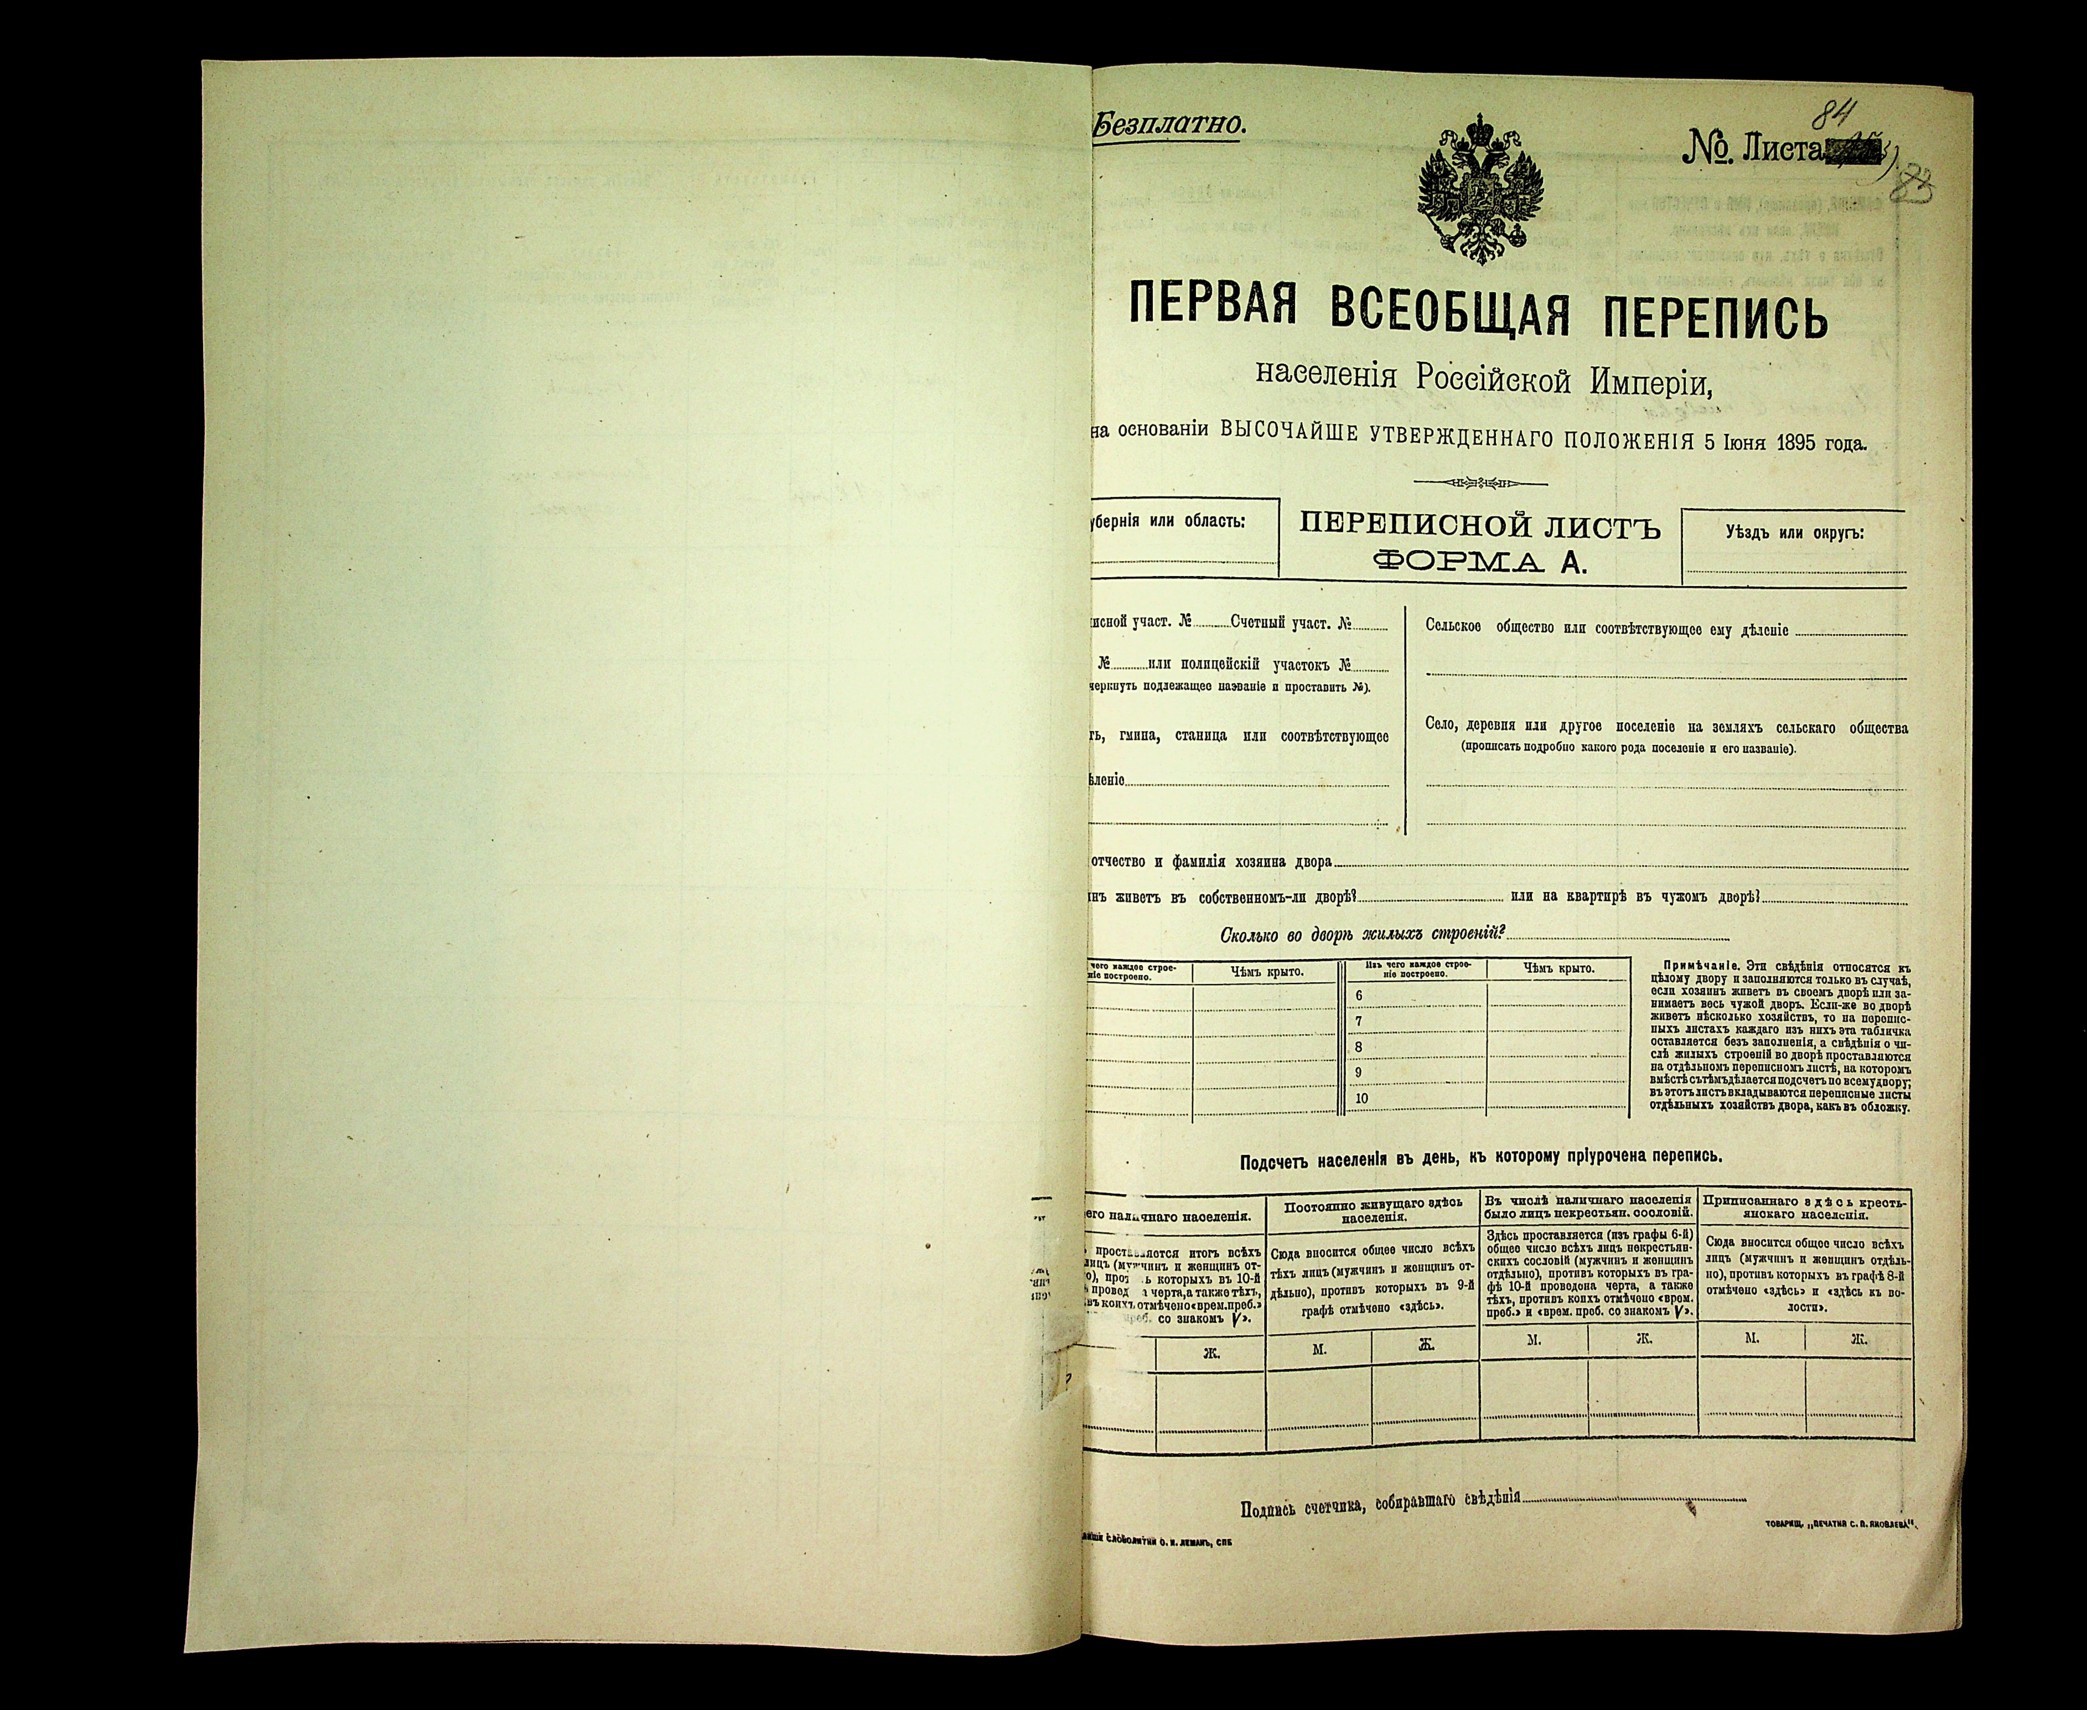 Безплатно.
84
№. Листа
83
ПЕРВАЯ ВСЕОБЩАЯ ПЕРЕПИСЬ
населенія Россійской Имперіи,
на основаніи ВЫСОЧАЙШЕ УТВЕРЖДЕННАГО ПОЛОЖЕНІЯ 5 Іюня 1895 года.
убернія или область:
ПЕРЕПИСНОЙ ЛИСТЪ
ФОРМА А.
Уѣздъ или округъ:
исной участ. № Счетный участ. №
№ или полицейскій участокъ №
черкнуть подлежащее названіе и проставить №).
ть, гмина, станица или соотвѣтствующее
ѣленіе
Сельское общество или соотвѣтствующее ему дѣленіе
Село, деревня или другое поселеніе на земляхъ сельскаго общества
(прописать подробно какого рода поселеніе и его названіе).
отчество и фамилія хозяина двора
инъ живетъ въ собственномъ-ли дворѣ? или на квартирѣ въ чужомъ дворѣ?
Сколько во дворѣ жилыхъ строеній?
чего каждое строе-
ніе построено.
Чѣмъ крыто.
Изъ чего каждое строе-
ніе построено.
Чѣмъ крыто.
6
7
8
9
10
Примѣчаніе. Эти свѣдѣнія относятся къ
цѣлому двору и заполняются только въ случаѣ,
если хозяинъ живетъ въ своемъ дворѣ или за-
нимаетъ весь чужой дворъ. Если-же во дворѣ
живетъ нѣсколько хозяйствъ, то на перепис-
ныхъ листахъ каждаго изъ нихъ эта табличка
оставляется безъ заполненія, а свѣдѣнія о чи-
слѣ жилыхъ строеній во дворѣ проставляются
на отдѣльномъ переписномъ листѣ, на которомъ
вмѣстѣ съ тѣмъ дѣлается подсчетъ по всему двору;
въ этотъ листъ вкладываются переписные листы
отдѣльныхъ хозяйствъ двора, какъ въ обложку.
Подсчетъ населенія въ день, къ которому пріурочена перепись.
его наличнаго населенія.
проставляется итогъ всѣхъ
лицъ (мужчинъ и женщинъ от-
о), прот ь которыхъ въ 10-й
провед а черта, а также тѣхъ,
въ коихъ отмѣчено «врем. преб.»
преб. со знакомъ V».
Ж.
Постоянно живущаго здѣсь
населенія.
Сюда вносится общее число всѣхъ
тѣхъ лицъ (мужчинъ и женщинъ от-
дѣльно), противъ которыхъ въ 9-й
графѣ отмѣчено «здѣсь».
М. Ж.
Въ числѣ наличнаго населенія
было лицъ некрестьян. сословій.
Здѣсь проставляется (изъ графы 6-й)
общее число всѣхъ лицъ некрестьян-
скихъ сословій (мужчинъ и женщинъ
отдѣльно), противъ которыхъ въ гра-
фѣ 10-й проведена черта, а также
тѣхъ, противъ коихъ отмѣчено «врем.
преб.» и «врем. преб. со знакомъ V».
М. Ж.
Приписаннаго здѣсь кресть-
янскаго населенія.
Сюда вносится общее число всѣхъ
лицъ (мужчинъ и женщинъ отдѣль-
но), противъ которыхъ въ графѣ 8-й
отмѣчено «здѣсь» и «здѣсь къ во-
лости».
М. Ж.
Подпись счетчика, собиравшаго свѣдѣнія
СЛОВОЛИТНИ О. И. ЛЕМАНЪ, СПБ
ТОВАРИЩ. „ПЕЧАТНЯ С. П. ЯКОВЛЕВА".